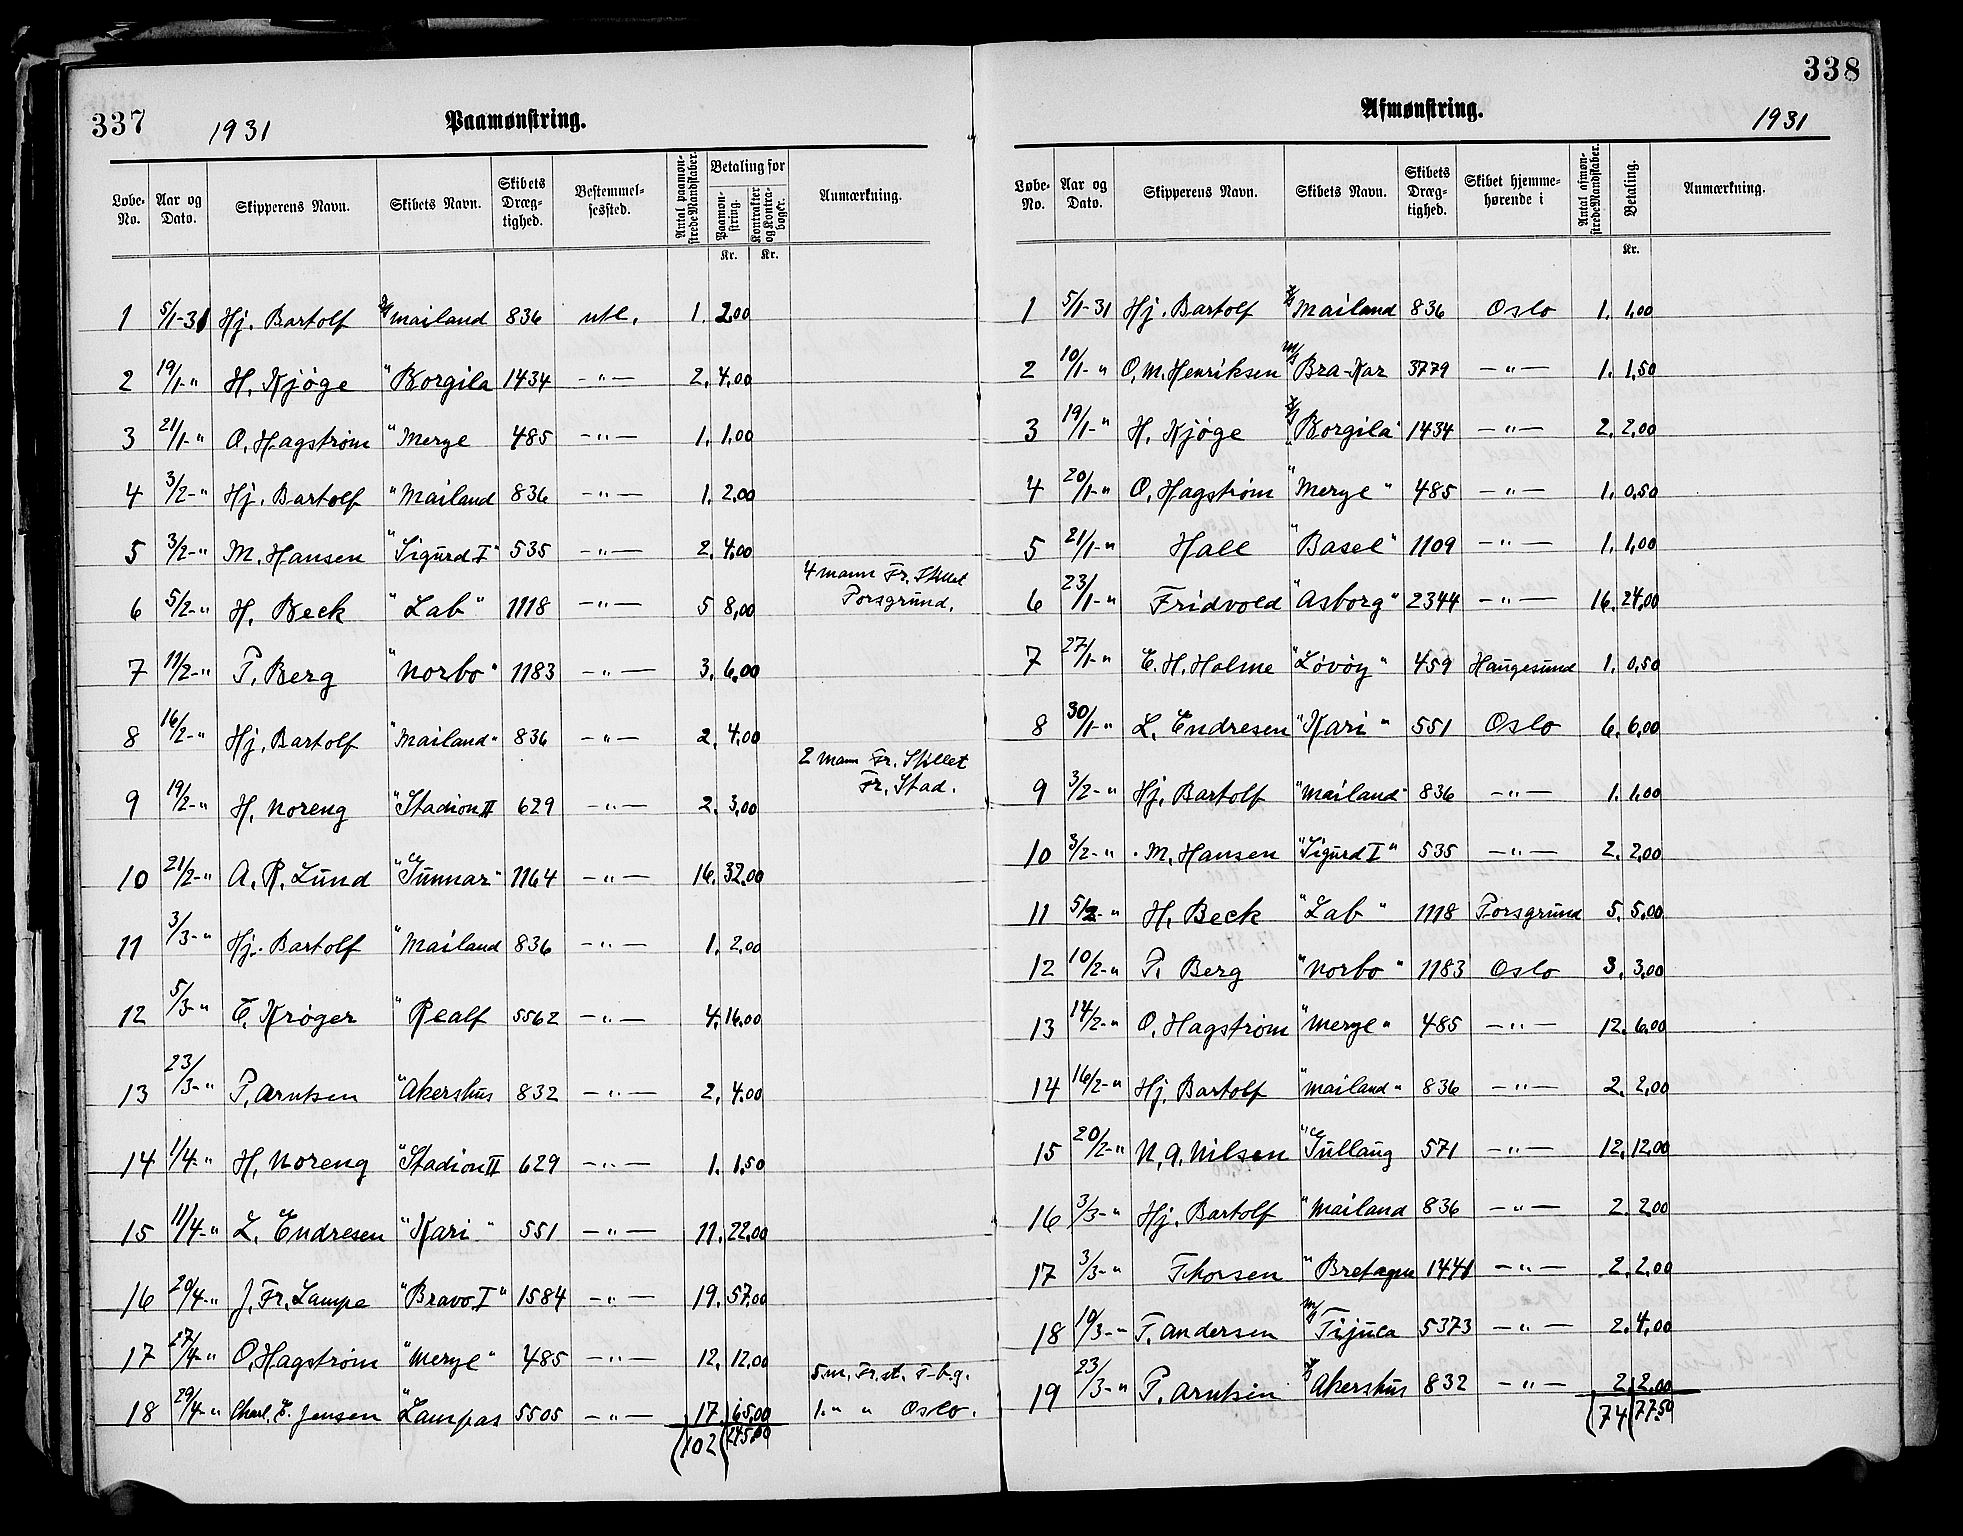 337
1931
Paamønstring.
Løbe-No. Aar og Dato. Skipperens Navn. Skibets Navn. Skibets Dræg-tighed. Bestemmel-sessted. Antal paamøn-strede Mandskaber. Betaling for Paamøn-string. Kr. Kontrakter og Kontra-bøger. Kr. Anmærkning.
1 5/1-31 Hj. Bartolf D/S Mailand 836 utl. 1. 2.00
2 19/1-" H. Kjøge " Borgila 1434 -"- 2. 4.00
3 21/1-" O. Hagstrøm " Merye 485 -"- 1. 1.00
4 3/2-" Hj. Bartolf " Mailand 836 -"- 1. 2.00
5 3/2-" M. Hansen "Sigurd I" 535 -"- 2. 4.00
6 5/2-" H. Beck " Lab " 1118 -"- 5 8,00 4 mann Fr. Skillet Porsgrund.
7 11/2-" P. Berg " Norbo " 1183 -"- 3. 6.00
8 16/2-" Hj. Bartolf "Mailand" 836 -"- 2. 4.00
9 19/2-" H. Noreng "Stadion II 629 -"- 2. 3.00 2 mann Fr. Skillet Fr. Stad.
10 21/2-" A. R. Lund "Gunnar" 1164 -"- 16. 32.00
11 3/3-" Hj. Bartolf " Mailand 836 -"- 1. 2.00
12 5/3-" E. Krøger " Realf 5562 -"- 4. 16.00
13 23/3-" P. Arntsen "Akershus 832 -"- 2. 4.00
14 1/4-" H. Noreng "Stadion II 629 -"- 1. 1.50
15 11/4-" L. Endresen "Kari " 551 -"- 11. 22.00
16 20/4-" J. Fr. Lampe "Bravo I" 1584 -"- 19. 57.00
17 27/4-" O. Hagstrøm "Merye" 485 -"- 12. 12.00
18 29/4-" Charl. E. Jensen " Lampas 5505 -"- 17. 65.00 5 m. Fr.st. T-b-g. 1. " " Oslo.
102 245.00
338
Afmønstring.
1931
Løbe-No. Aar og Dato. Skipperens Navn. Skibets Navn. Skibets Dræg-tighed. Skibet hjemme-hørende i Antal afmøn-strede Mandskaber. Betaling. Kr. Anmærkning.
1 5/1-31 Hj. Bartolf D/S Mailand 836 Oslo 1. 1.00
2 10/1-" O. M. Henriksen M/S Bra-Kar 3779 -"- 1. 1.50
3 19/1-" H. Kjøge D/S Borgila 1434 -"- 2. 2.00
4 20/1-" O. Hagstrøm "Merye" 485 -"- 1. 0.50
5 21/1-" Hall "Basel" 1109 -"- 1. 1.00
6 23/1-" Fridvold "Asborg" 2344 -"- 16. 24.00
7 27/1-" E. H. Holme "Løvøy" 459 Haugesund 1. 0.50
8 30/1-" L. Endresen "Kari " 551 Oslo 6. 6.00
9 3/2-" Hj. Bartolf "Mailand" 836 -"- 1. 1.00
10 3/2-" M. Hansen "Sigurd I" 535 -"- 2. 2.00
11 5/2-" H. Beck "Lab " 1118 Porsgrund 5. 5.00
12 10/2-" P. Berg "Norbo " 1183 Oslo 3. 3.00
13 14/2-" O. Hagstrøm "Merye" 485 -"- 12. 6.00
14 16/2-" Hj. Bartolf "Mailand" 836 -"- 2. 2.00
15 20/2-" N. A. Nilsen "Gullaug 571 -"- 12. 12.00
16 3/3-" Hj. Bartolf "Mailand 836 -"- 2. 2.00
17 3/3-" Thorsen " Bretagne 1441 -"- 2. 2.00
18 19/3-" T. Andersen M/S Tijuca 5373 -"- 2. 4.00
19 23/3-" P. Arntsen D/S Akershus 832 -"- 2. 2.00
74 77.50